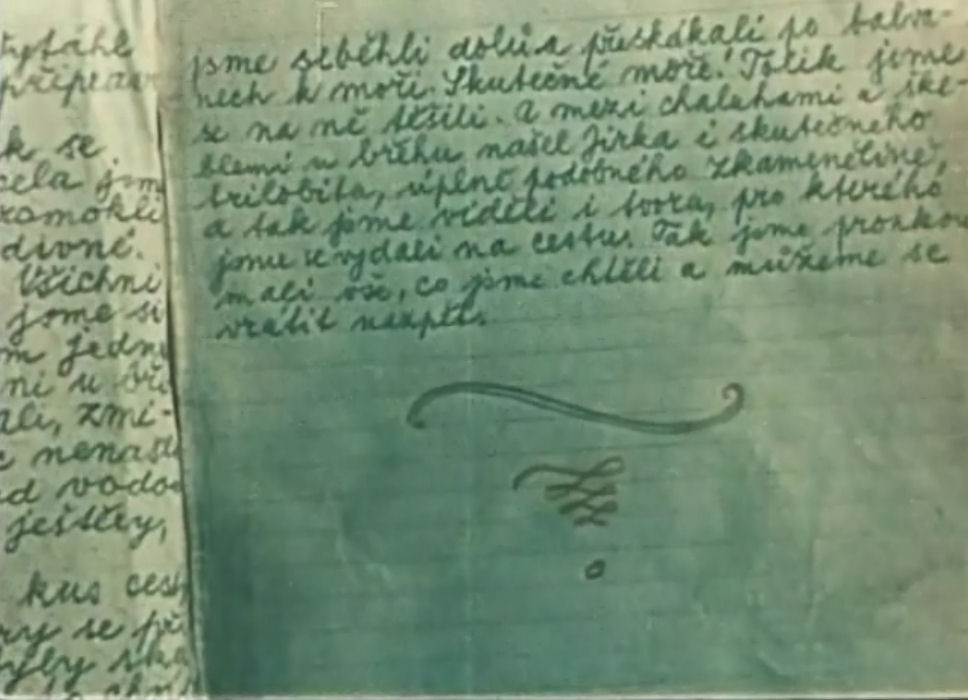 vytáhl
připrav
k se
cela jsm
romokli
divné.
Všichni
jsme si
m jedn
ni u
ali, zmi-
nenaš
d vodo
ještěry,
kus cest
ry se př
yby ska
jsme seběhli dolů a přeskákali po balva-
nech k moři. Skutečné moře! Tolik jsme
se na ně těšili. A mezi chaluhami a ške-
blemi u břehu našel Jirka i skutečného
trilobita, úplně podobného zkamenělině,
a tak jsme viděli i tvora, pro kterého
jsme se vydali na cestu. Tak jsme prozkou
mali vše, co jsme chtěli a můžeme se
vrátit nazpět.